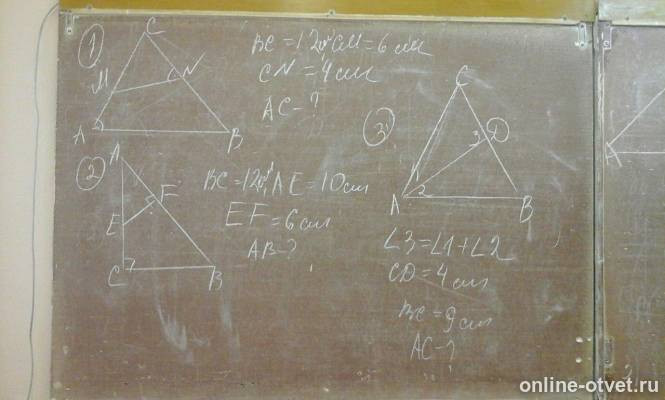 1
C
M
N
A
B
BC = 12 см CM = 6 см
CN = 4 см
AC - ?
2
A
E
F
C
B
BC = 12 см AE = 10 см
EF = 6 см
AB - ?
3
C
D
3
1
2
A
B
∠3 = ∠1 + ∠2
CD = 4 см
BC = 9 см
AC - ?
A
online-otvet.ru